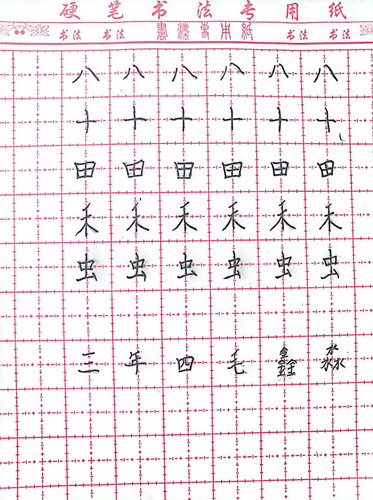 硬笔书法专用纸
书法 书法 書法专用纸 书法 书法
八八八八八八
十十十十十十
田田田田田田
禾禾禾禾禾禾
虫虫虫虫虫虫
三年四毛鑫淼